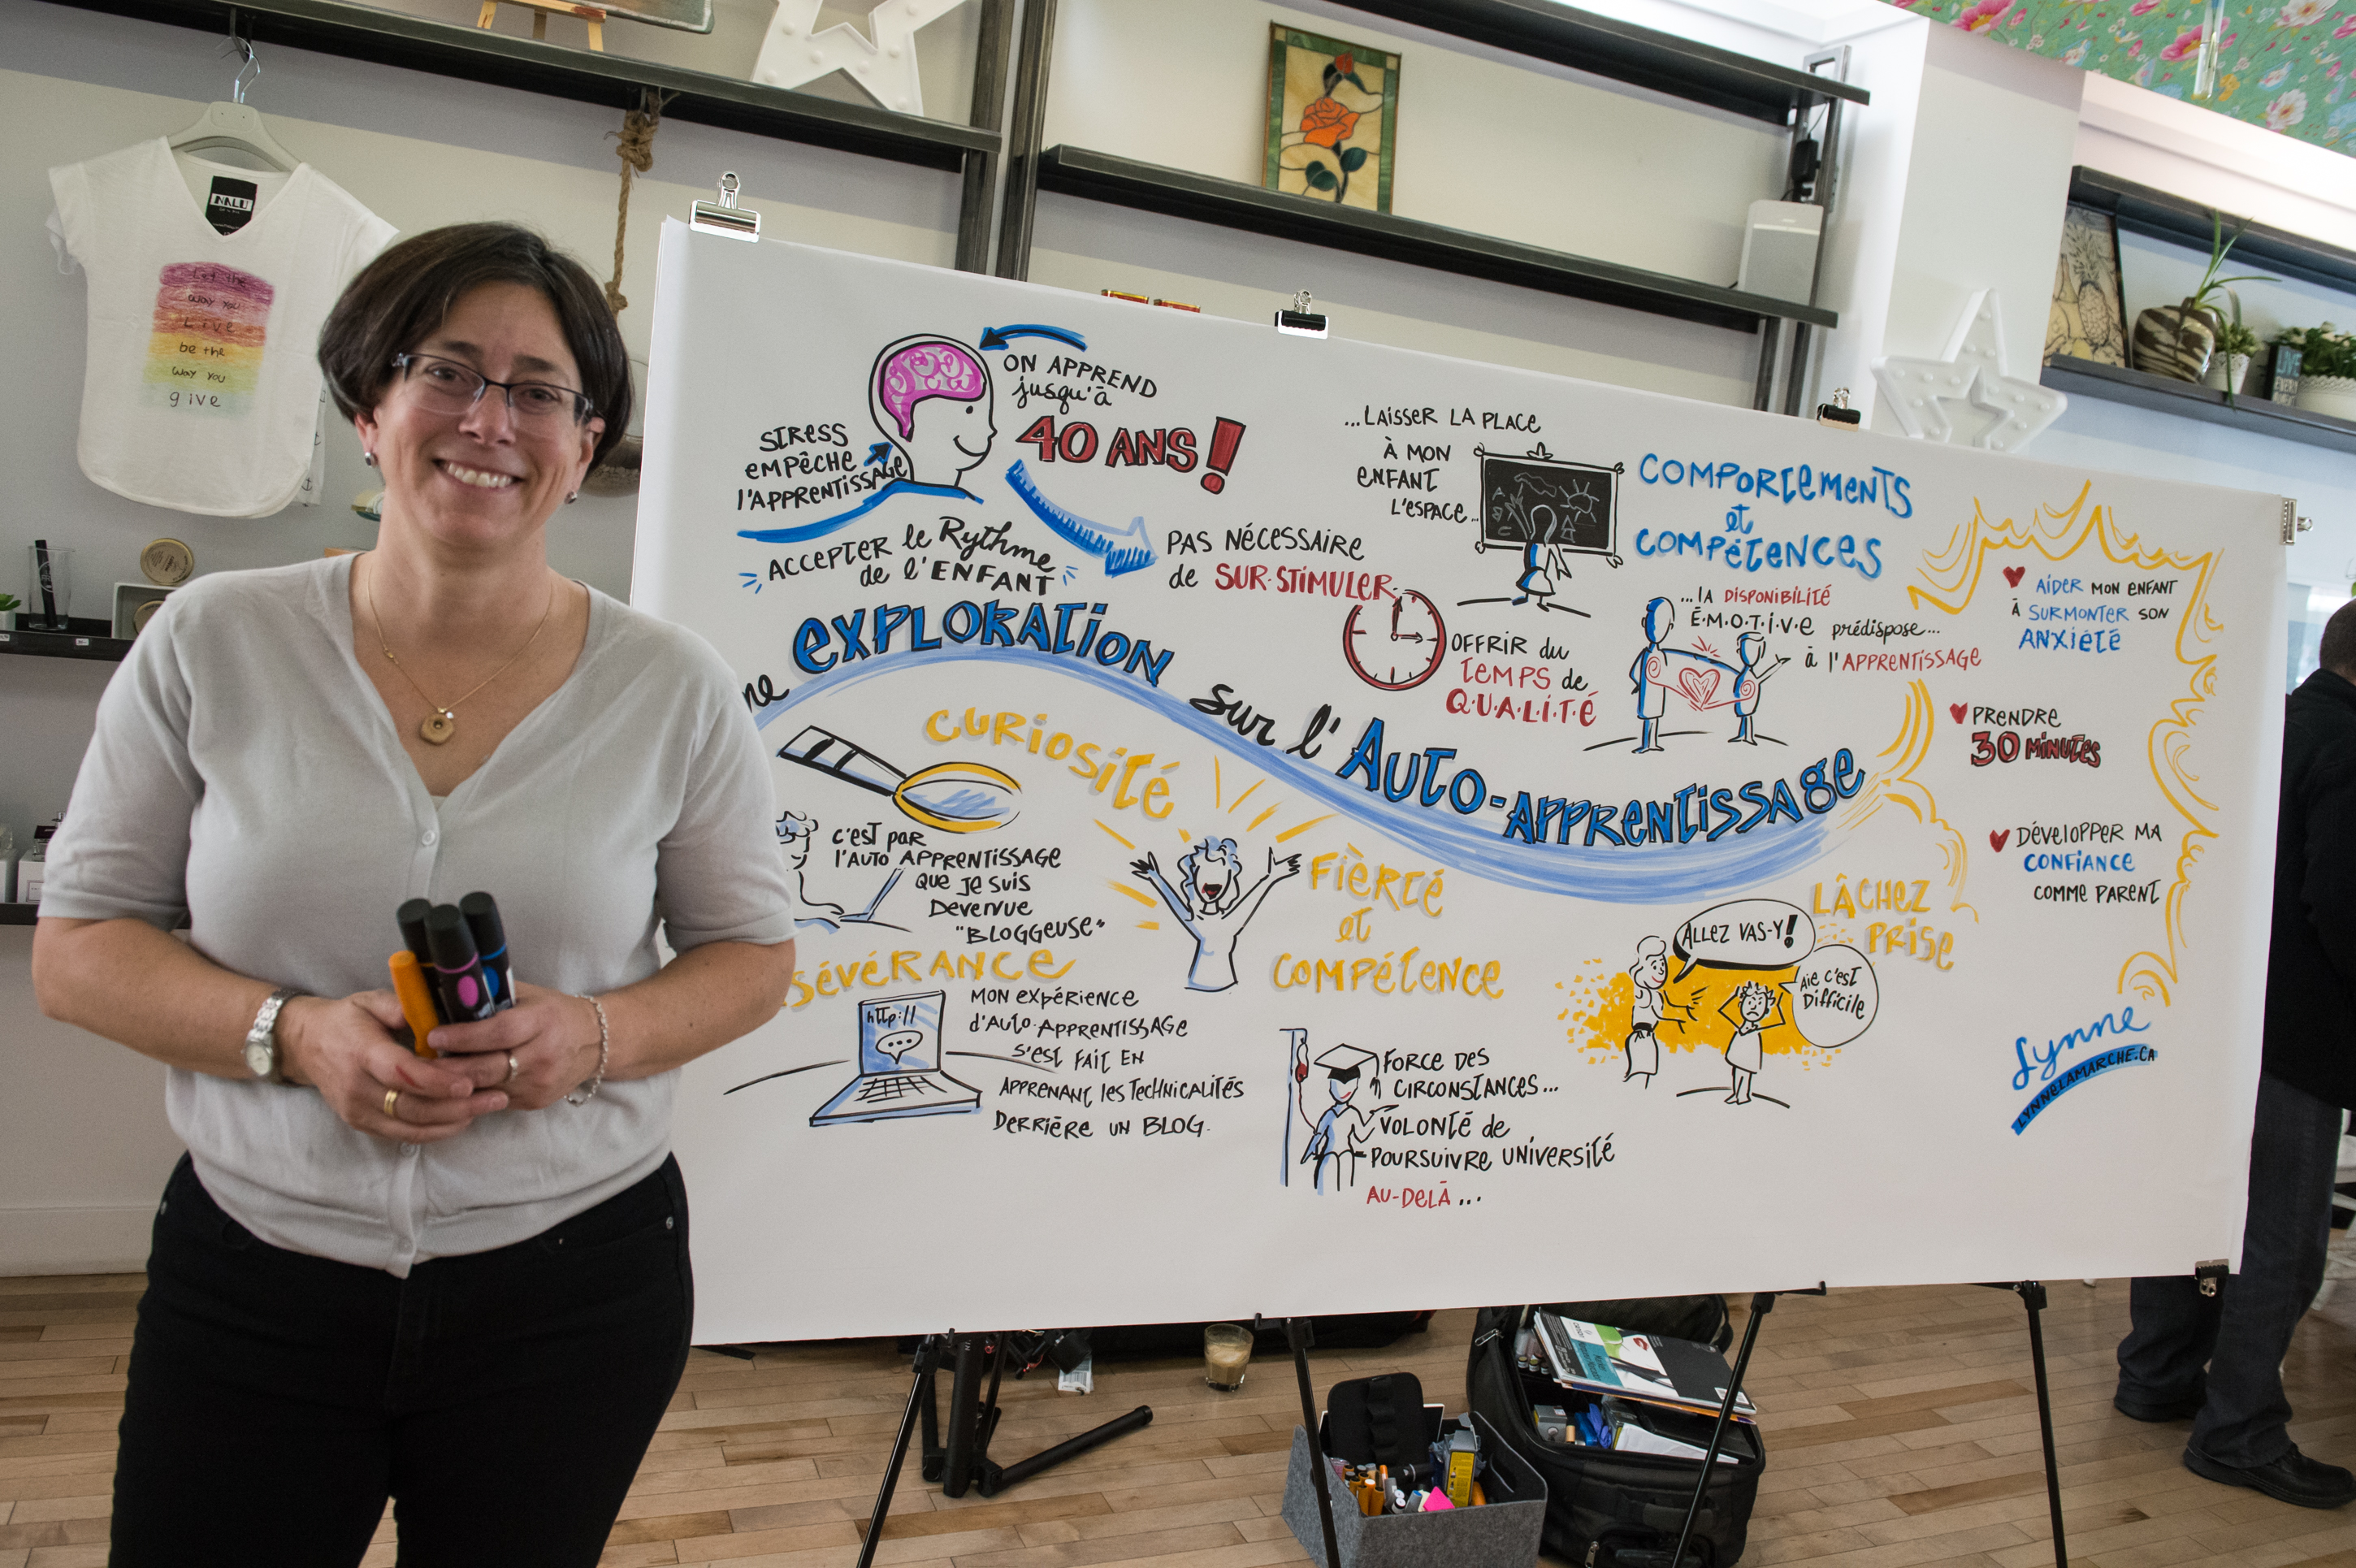 NALU
Let the
way you
Live
be the
way you
give
STRESS
EMPÊCHE
L'APPRENTISSAGE
ON APPREND
jusqu'à
40 ANS!
ACCEPTER le Rythme
de l'ENFANT
PAS NÉCESSAIRE
de SUR-STIMULER
...LAISSER LA PLACE
À MON
ENFANT
L'ESPACE...
COMPORTEMENTS
et
COMPÉTENCES
OFFRIR du
TEMPS de
Q·U·A·L·I·T·É
...lA DISPONIBILITÉ
É·M·O·T·i·V·e prédispose...
à l'APPRENTISSAGE
EXPLORATION sur l'AUTO-APPRENTISSAGE
CURIOSITÉ
C'EST PAR
l'AUTO APPRENTISSAGE
QUE JE SUIS
DEVENUE
"BLOGGEUSE"
SÉVÉRANCE
http://
...
MON EXPÉRIENCE
d'AUTO-APPRENTISSAGE
S'EST FAIT EN
APPRENANT lES TECHNICALITÉS
DERRIÈRE UN BLOG.
FIÈRTÉ
et
COMPÉTENCE
FORCE DES
CIRCONSTANCES...
VOLONTÉ de
POURSUIVRE UNIVERSITÉ
AU-DELÀ...
LÂCHEZ
PRISE
ALLEZ VAS-Y!
AIE C'EST
DIFFICILE
AIDER MON ENFANT
À SURMONTER SON
ANXIÉTÉ
PRENDRE
30 MINUTES
DÉVELOPPER MA
CONFIANCE
COMME PARENT
Lynne
LYNNELAMARCHE.CA